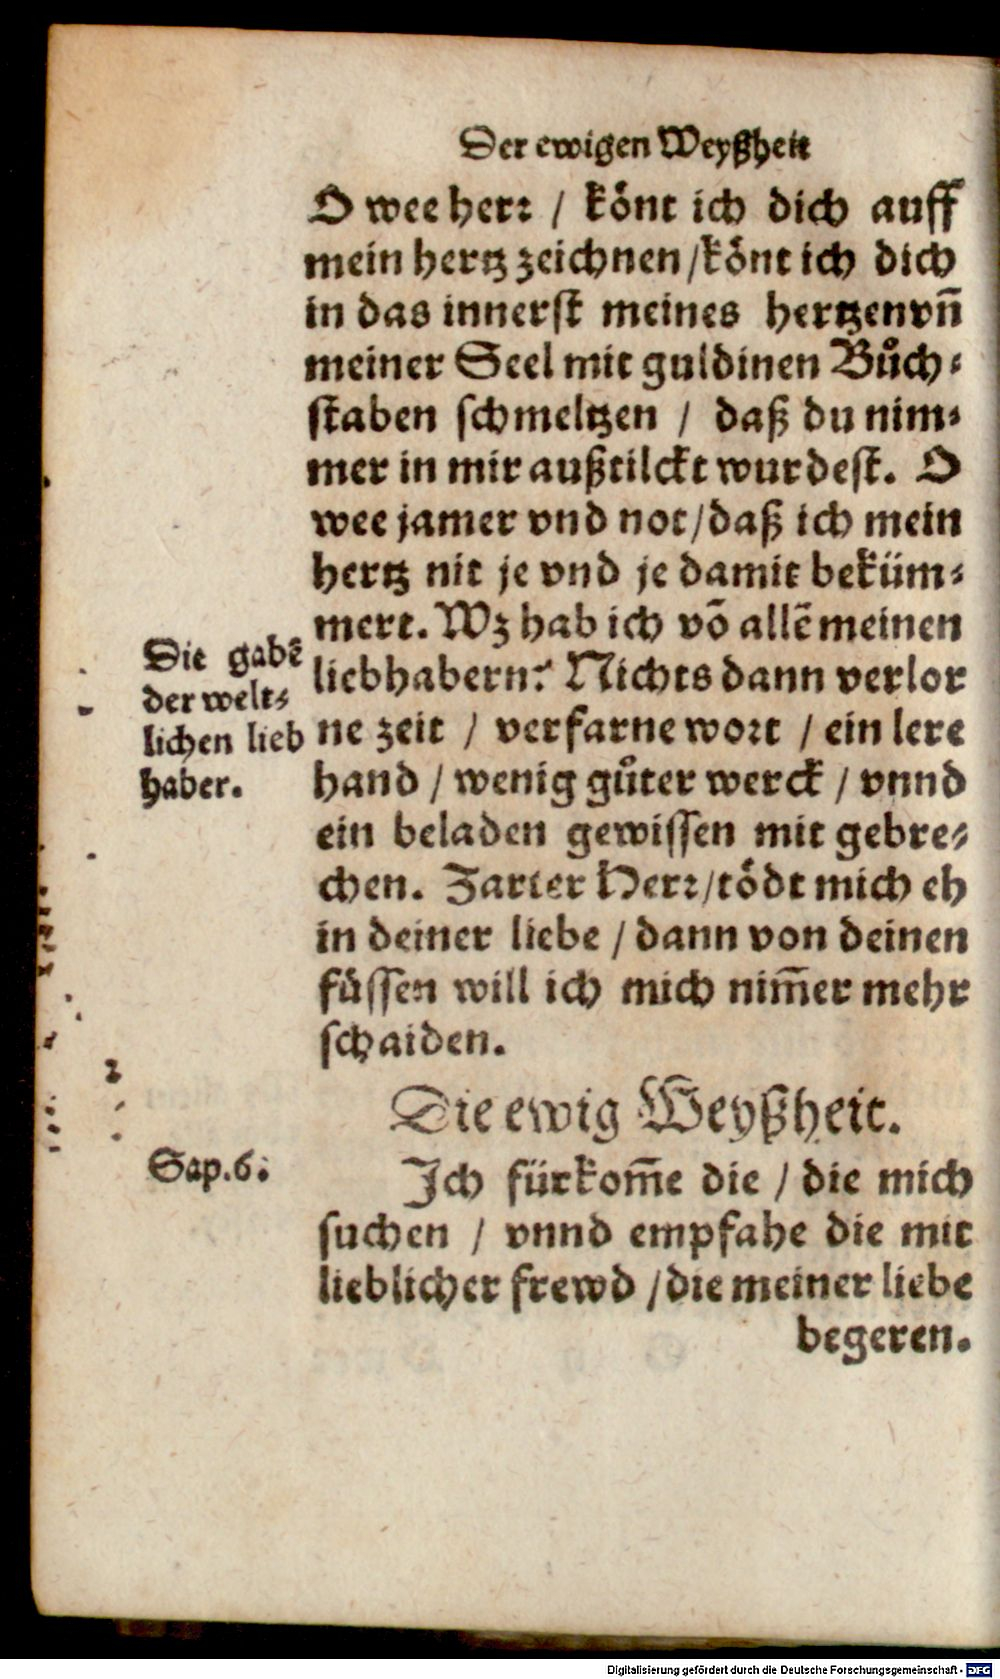 Der ewigen Weyßheit
O wee herr / könt ich dich auff
mein hertz zeichnen / könt ich dich
in das innerst meines hertzen vn̄
meiner Seel mit guldinen Bůch⸗
staben schmeltzen / daß du nim⸗
mer in mir außtilckt wurdest. O
wee jamer vnd not / daß ich mein
hertz nit je vnd je damit beküm⸗
mert. Wz hab ich vō allē meinen
liebhabern? Nichts dann verlor
ne zeit / verfarne wort / ein lere
hand / wenig gůter werck / vnnd
ein beladen gewissen mit gebre⸗
chen. Zarter Herr / tödt mich eh
in deiner liebe / dann von deinen
füssen will ich mich nim̄er mehr
schaiden.
Die gabē
der welt⸗
lichen lieb
haber.
Die ewig Weyßheit.
Sap.6.
Ich fürkom̄e die / die mich
suchen / vnnd empfahe die mit
lieblicher frewd / die meiner liebe
begeren.
Digitalisierung gefördert durch die Deutsche Forschungsgemeinschaft - DFG